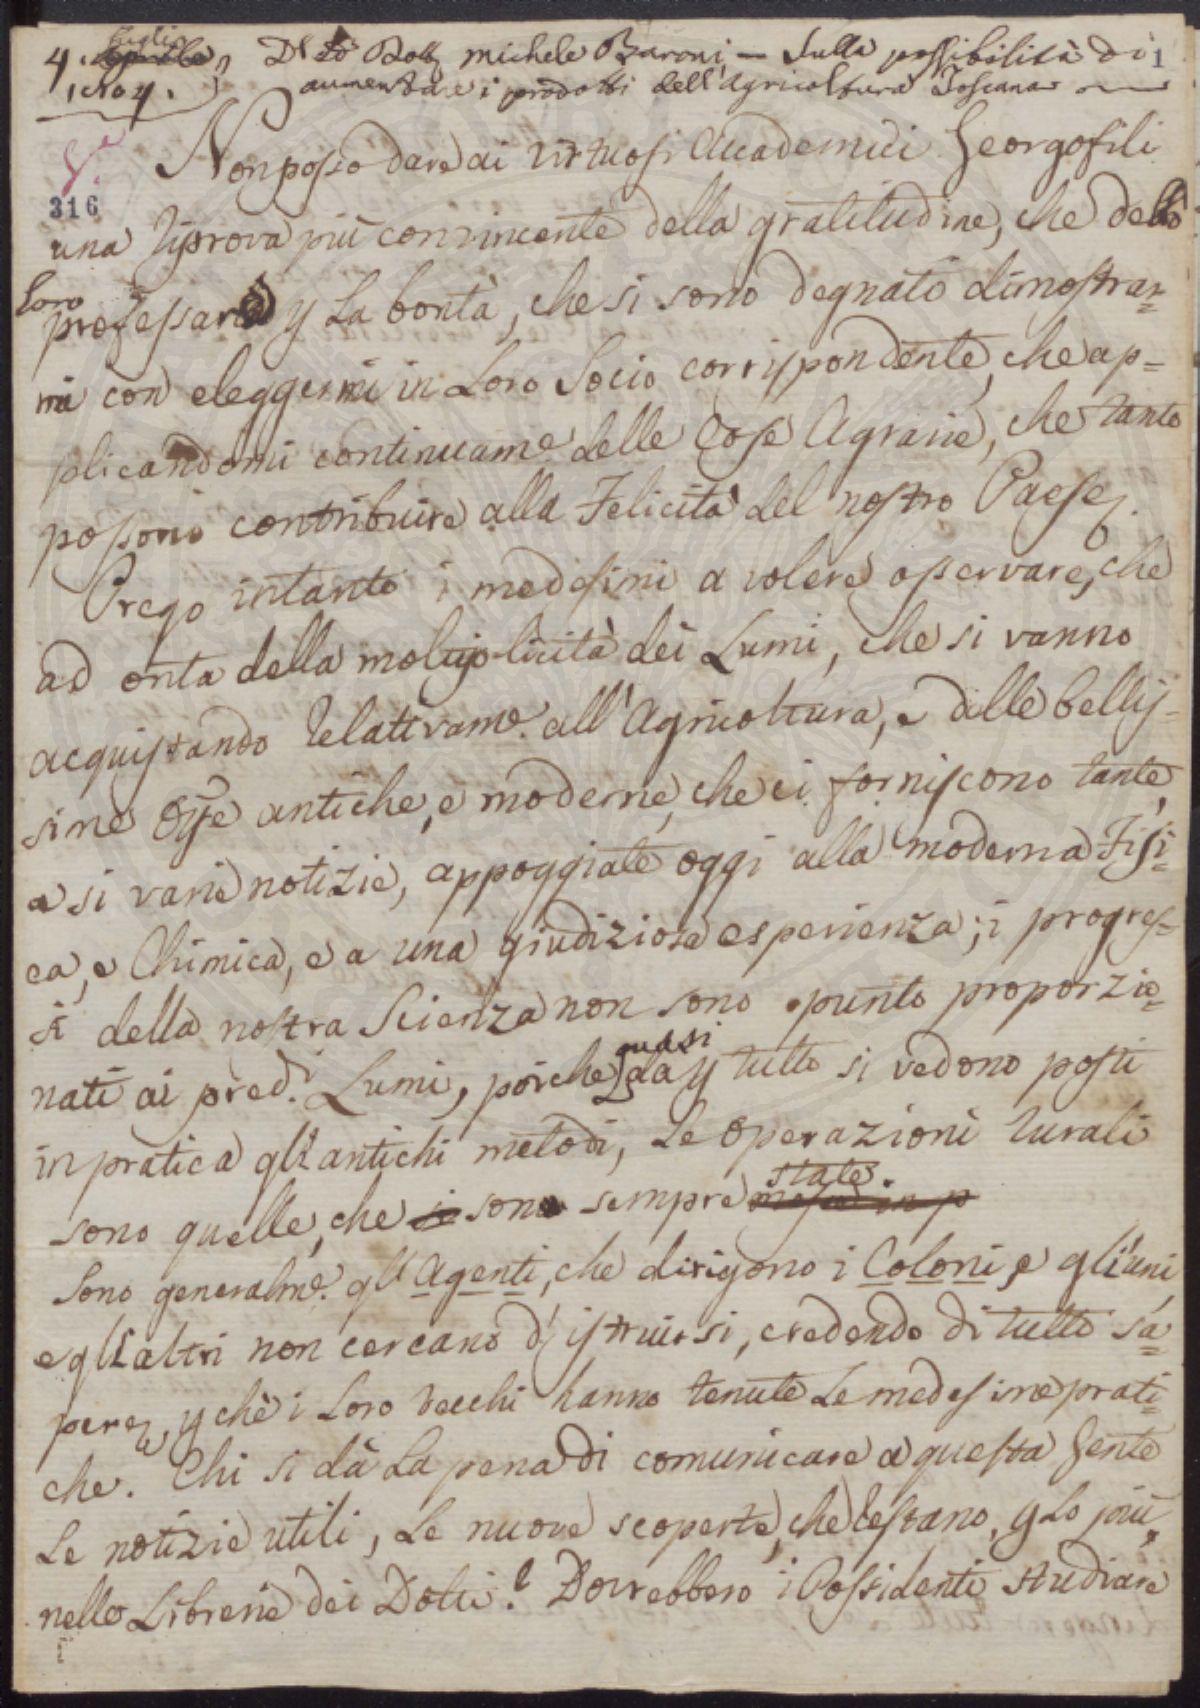 4. Luglio
1804.
Del Sig. Dott. Michele Baroni — Sulla possibilità di 1
aumentare i prodotti dell'Agricoltura Toscana
316
Non posso dare ai virtuosi Accademici Georgofili
una riprova più convincente della gratitudine, che debbo
Loro
professare p la bontà, che si sono degnati dimostrar=
mi con eleggermi in Loro Socio corrispondente, che ap=
plicandomi continuame. delle Cose Agrarie, che tanto
possono contribuire alla Felicità del nostro Paese.
Prego intanto i medesimi a volere osservare, che
ad onta della moltiplicità dei Lumi, che si vanno
acquistando relativame. all'Agricoltura, e dalle bellis=
sime Ope antiche, e moderne, che ci forniscono tante,
e si varie notizie, appoggiate oggi alla moderna Fisi=
ca, e Chimica, e a una giudiziosa esperienza; i progres=
si della nostra Scienza non sono punto proporzio=
nati ai pred.i Lumi, poiche quasi da p tutto si vedono posti
in pratica gli antichi metodi, Le operazioni rurali
sono quelle, che sono sempre state.
Sono generalme. gli Agenti, che dirigono i Coloni, e gli uni,
e gli altri non cercano d'istruirsi, credendo di tutto sa=
pere, p chè i Loro Vecchi hanno tenute Le medesime prati=
che. Chi si dà La pena di comunicare a questa Gente
Le notizie utili, Le nuove scoperte, che restano, p Lo più,
nelle Librerie dei Dotti? Dovrebbero i Possidenti studiare